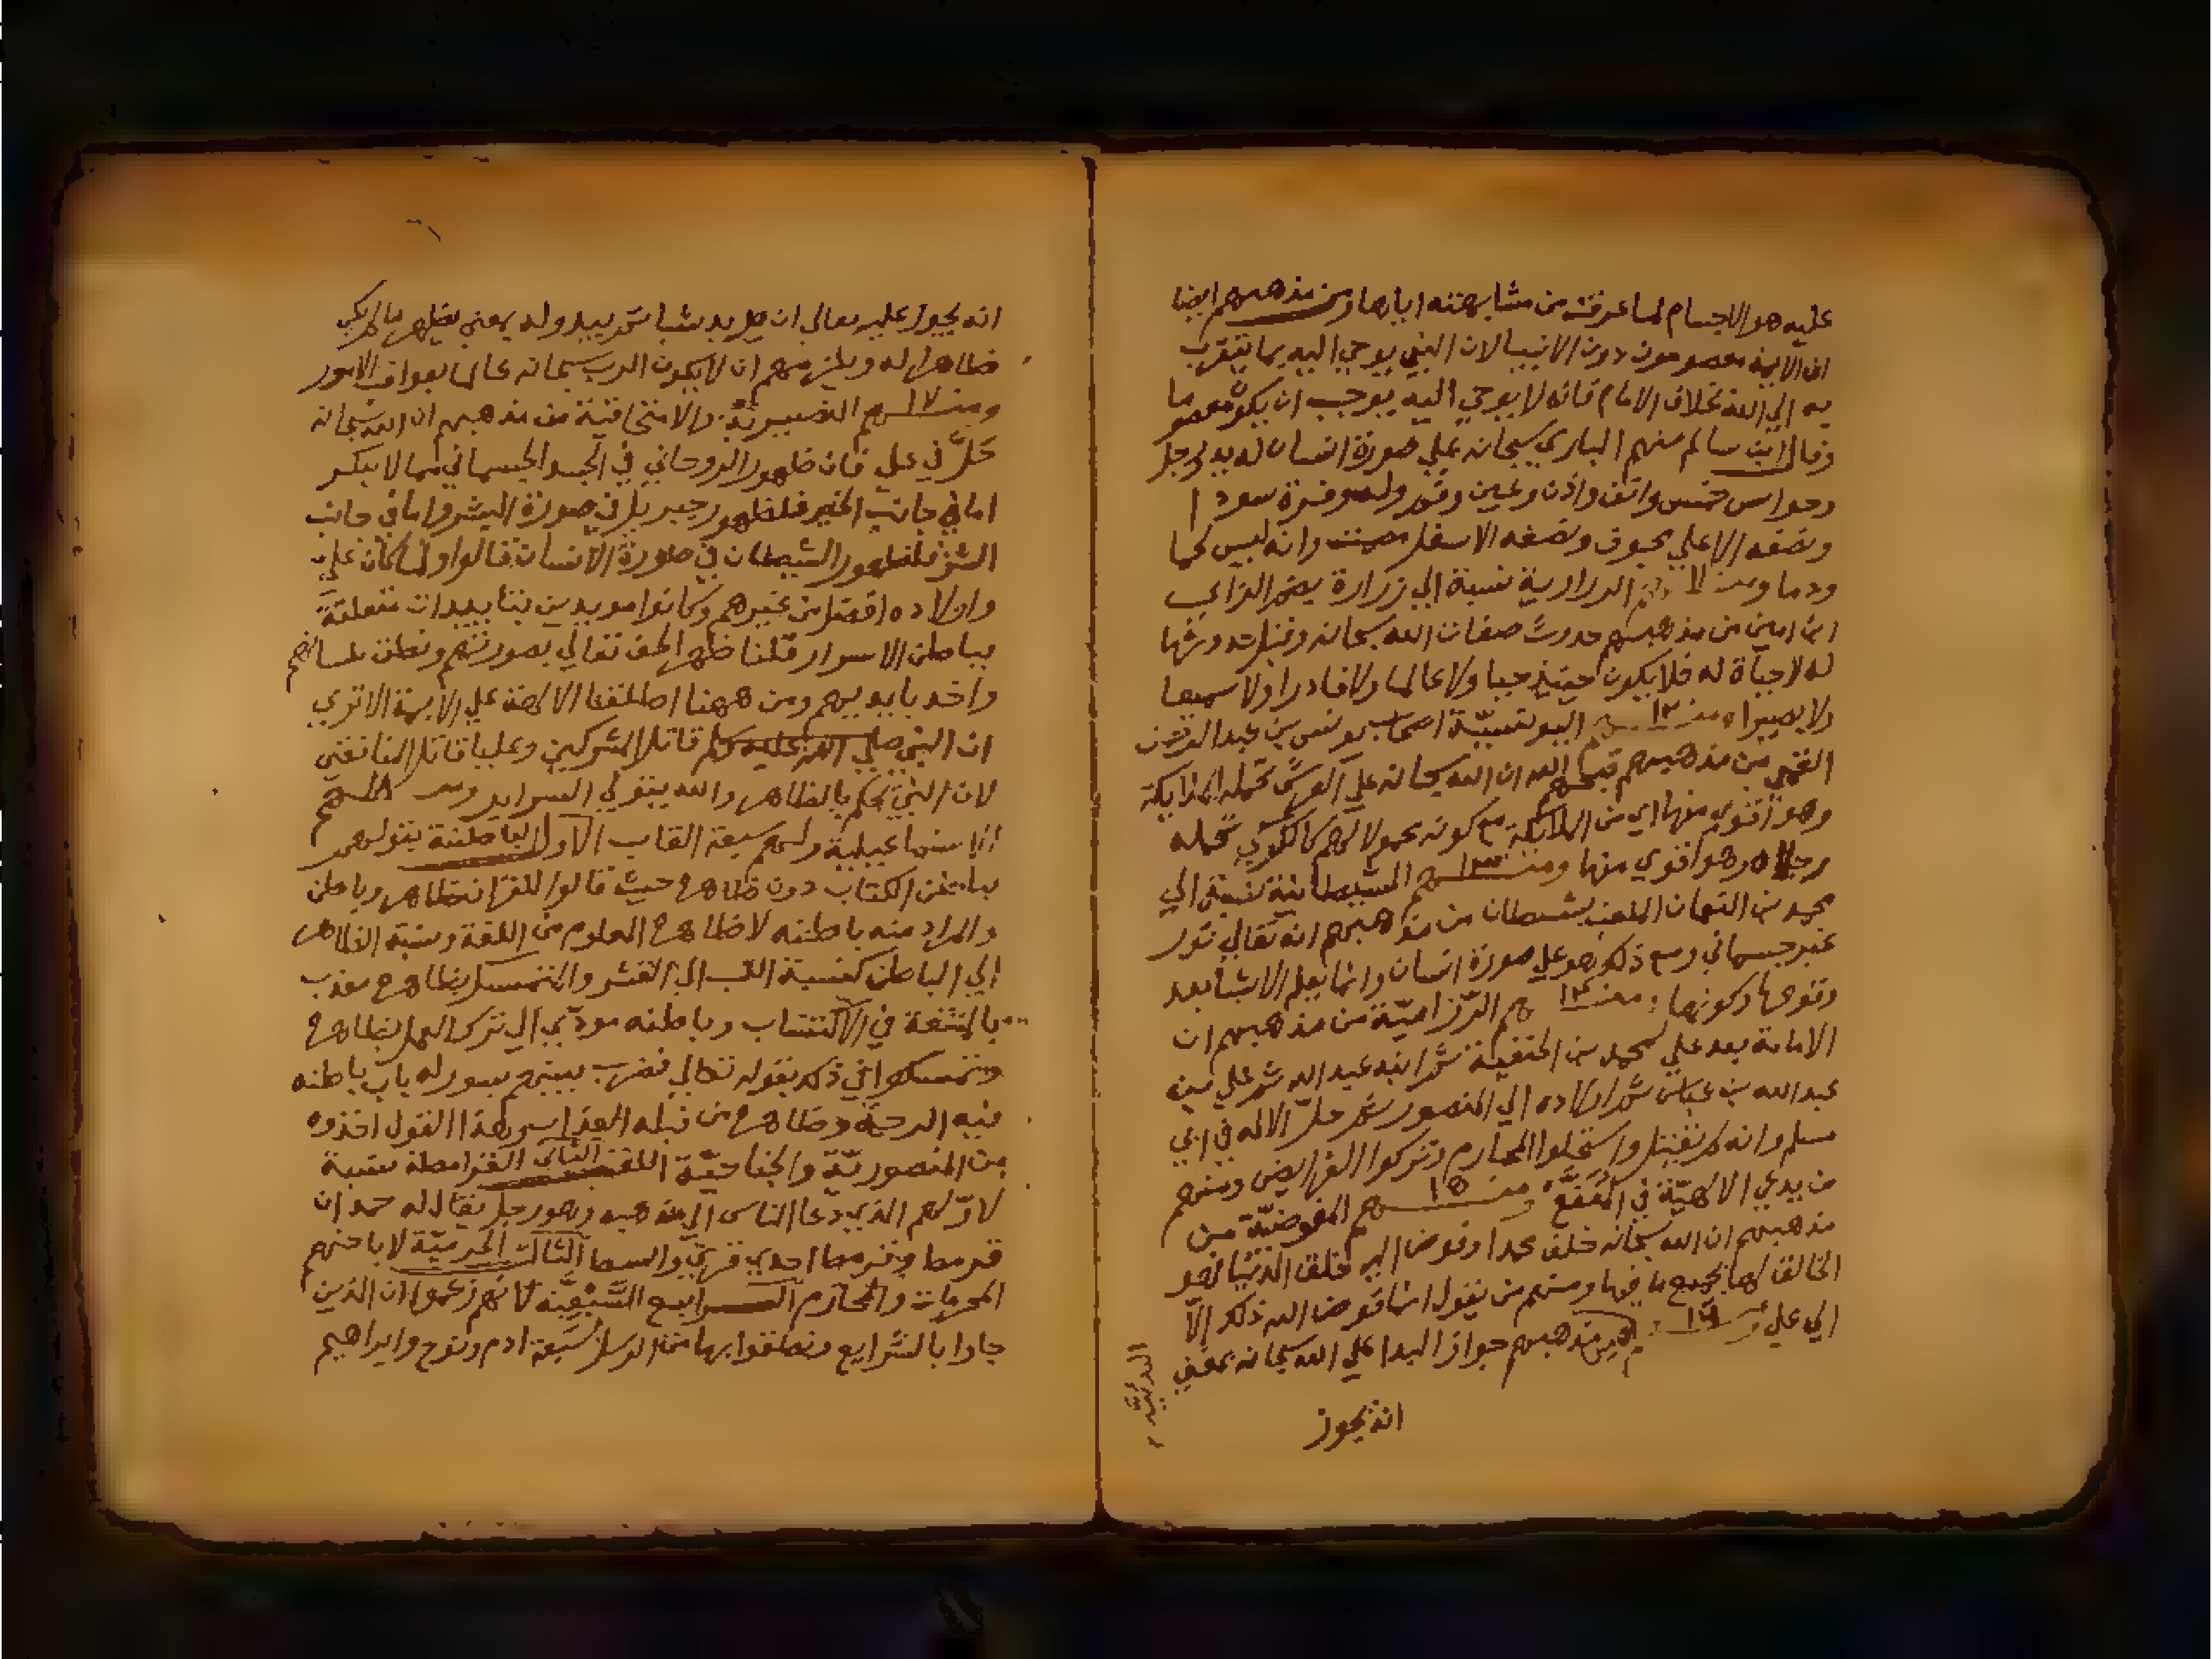 عليه هو الاجسام لما عرفت من مشابهته اياها ومن مذهبهم ايضا
ان الايمة معصومون دون الانبيا لان النبي يوحي اليه بما يتقرب
به الي الله بخلاف الامام فانه لا يوحي اليه يوجب ان يكون معصوما
وقال ابن سالم منهم الباري سبحانه علي صورة انسان له يد ورجل
وحواس خمس وانف واذن وعين وفم وله وفرة سودا
ونصفه الاعلي مجوف ونصفه الاسفل مصمت وانه ليس لحما
ودما ومنهم ١١ الزرارية نسبة الي زرارة
ابن اعين من مذهبهم حدوث صفات الله سبحانه وقبل حدوثها
له لا حياة له فلا يكون حينيذ حيا ولا عالما ولا قادرا ولا سميعا
ولا بصيرا ومنهم ١٢ اليونسية اصحاب يونس بن عبد الرحمن
القمي من مذهبهم قبحهم الله ان الله سبحانه علي العرش تحمله الملايكة
وهو اقوي منها اي من الملايكة مع كونه محمولا لهم كالكرسي تحمله
رجلاه وهو اقوي منها ومنهم ١٣ الشيطانية نسبة الي
محمد بن النعمان الملقب بشيطان من مذهبهم انه تعالي نور
غير جسماني ومع ذلك هو علي صورة انسان وانما يعلم الاشيا بعد
وقوعها وكونها ومنهم ١٤ الرزامية من مذهبهم ان
الامامة بعد علي لمحمد بن الحنفية ثم ابنه عبد الله ثم علي بن
عبد الله بن عباس ثم اولاده الي المنصور ثم حل الاله في ابي
مسلم وانه لم يقتل واستحلوا المحارم وتركوا الفرايض ومنهم
من يدعي الالهية في المقنع ومنهم ١٥ المفوضية من
مذهبهم ان الله سبحانه خلق محمدا وفوض اليه خلق الدنيا فهو
الخالق لها بجميع ما فيها ومنهم من يقول انما فوض الله ذلك الا
الي علي ومنهم ١٦ من مذهبهم جواز البدا علي الله سبحانه بمعني
انه يجوز
انه يجوز عليه تعالي ان يريد شيا ثم يبدو له بمعني يظهر ما لم يكن
ظاهرا له ويلزمهم ان لا يكون الرب سبحانه عالما بعواقب الامور
ومنهم ١٧ النصيرية والاسحاقية من مذهبهم ان الله سبحانه
حل في علي فان ظهور الروحاني في الجسد الجسماني مما لا ينكر
اما في جانب الخير فلظهور جبريل في صورة البشر واما في جانب
الشر فلظهور الشيطان في صورة الانسان قالوا ولما كان علي
واولاده افضل من غيرهم وكانوا مويدين بتاييدات متعلقة
بباطن الاسرار قلنا ظهر الحق تعالي بصورتهم ونطق بلسانهم
واخذ بايديهم ومن ههنا اطلقنا الالهة علي الايمة الا تري
ان النبي صلي الله عليه وسلم قاتل المشركين وعليا قاتل المنافقين
لان النبي يحكم بالظاهر والله يتولي السراير ومنهم ١٨
الاسماعيلية ولهم سبعة القاب الاول الباطنية لقولهم
بباطن الكتاب دون ظاهره حيث قالوا للقران ظاهر وباطن
والمراد منه باطنه لا ظاهره المعلوم من اللغة ونسبة الظاهر
الي الباطن كنسبة اللب الي القشر والمتمسك بظاهره معذب
بالمشقة في الاكتساب وباطنه مودي الي ترك العمل بظاهره
وتمسكوا في ذلك بقوله تعالي فضرب بينهم بسور له باب باطنه
فيه الرحمة وظاهره من قبله العذاب وهذا القول اخذوه
من المنصورية والجناحية اللقب الثاني القرامطة نسبة
لاولهم الذي دعا الناس الي مذهبه وهو رجل يقال له حمدان
قرمط وقرمط احدي قري واسط الثالث الحرمية لاباحتهم
المحرمات والمحارم الرابع السبعية لانهم زعموا ان الذين
جاوا بالشرايع ونطقوا بها من الرسل سبعة ادم ونوح وابراهيم